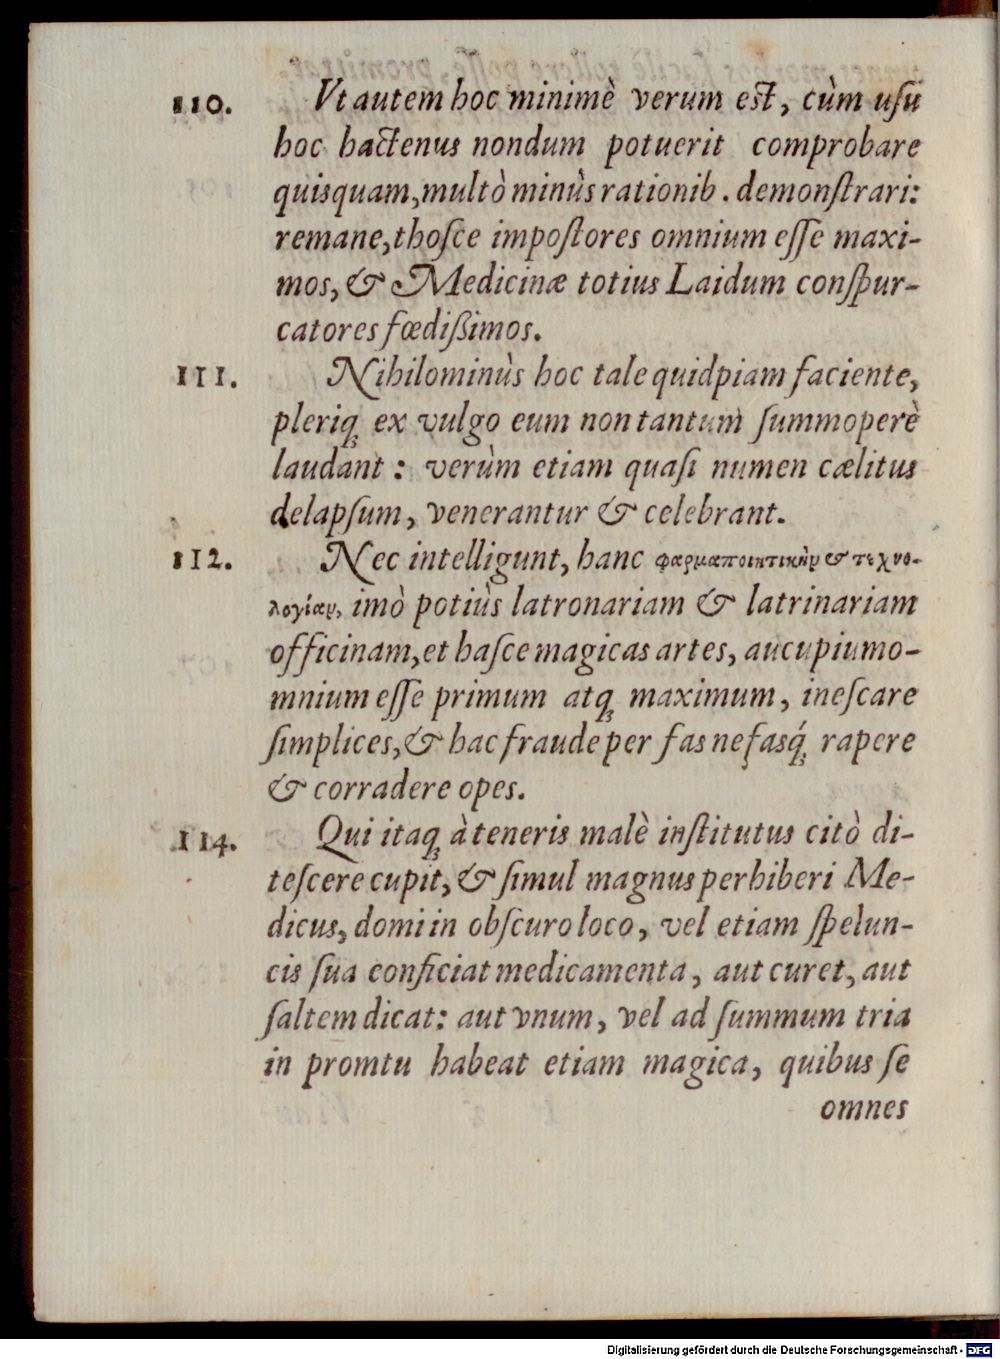 110. Vt autem hoc minimè verum est, cùm usu
hoc hactenus nondum potuerit comprobare
quisquam, multò minùs rationib. demonstrari:
remane, thosce impostores omnium esse maxi-
mos, & Medicinæ totius Laidum conspur-
catores fœdißimos.
111. Nihilominùs hoc tale quidpiam faciente,
pleriq; ex vulgo eum non tantùm summoperè
laudant: verùm etiam quasi numen cælitus
delapsum, venerantur & celebrant.
112. Nec intelligunt, hanc φαρμαποιητικὴν & τεχνο-
λογίαν, imò potiùs latronariam & latrinariam
officinam, et hasce magicas artes, aucupium o-
mnium esse primum atq; maximum, inescare
simplices, & hac fraude per fas nefasq́; rapere
& corradere opes.
114. Qui itaq; à teneris malè institutus citò di-
tescere cupit, & simul magnus perhiberi Me-
dicus, domi in obscuro loco, vel etiam spelun-
cis sua conficiat medicamenta, aut curet, aut
saltem dicat: aut vnum, vel ad summum tria
in promtu habeat etiam magica, quibus se
omnes
Digitalisierung gefördert durch die Deutsche Forschungsgemeinschaft - DFG